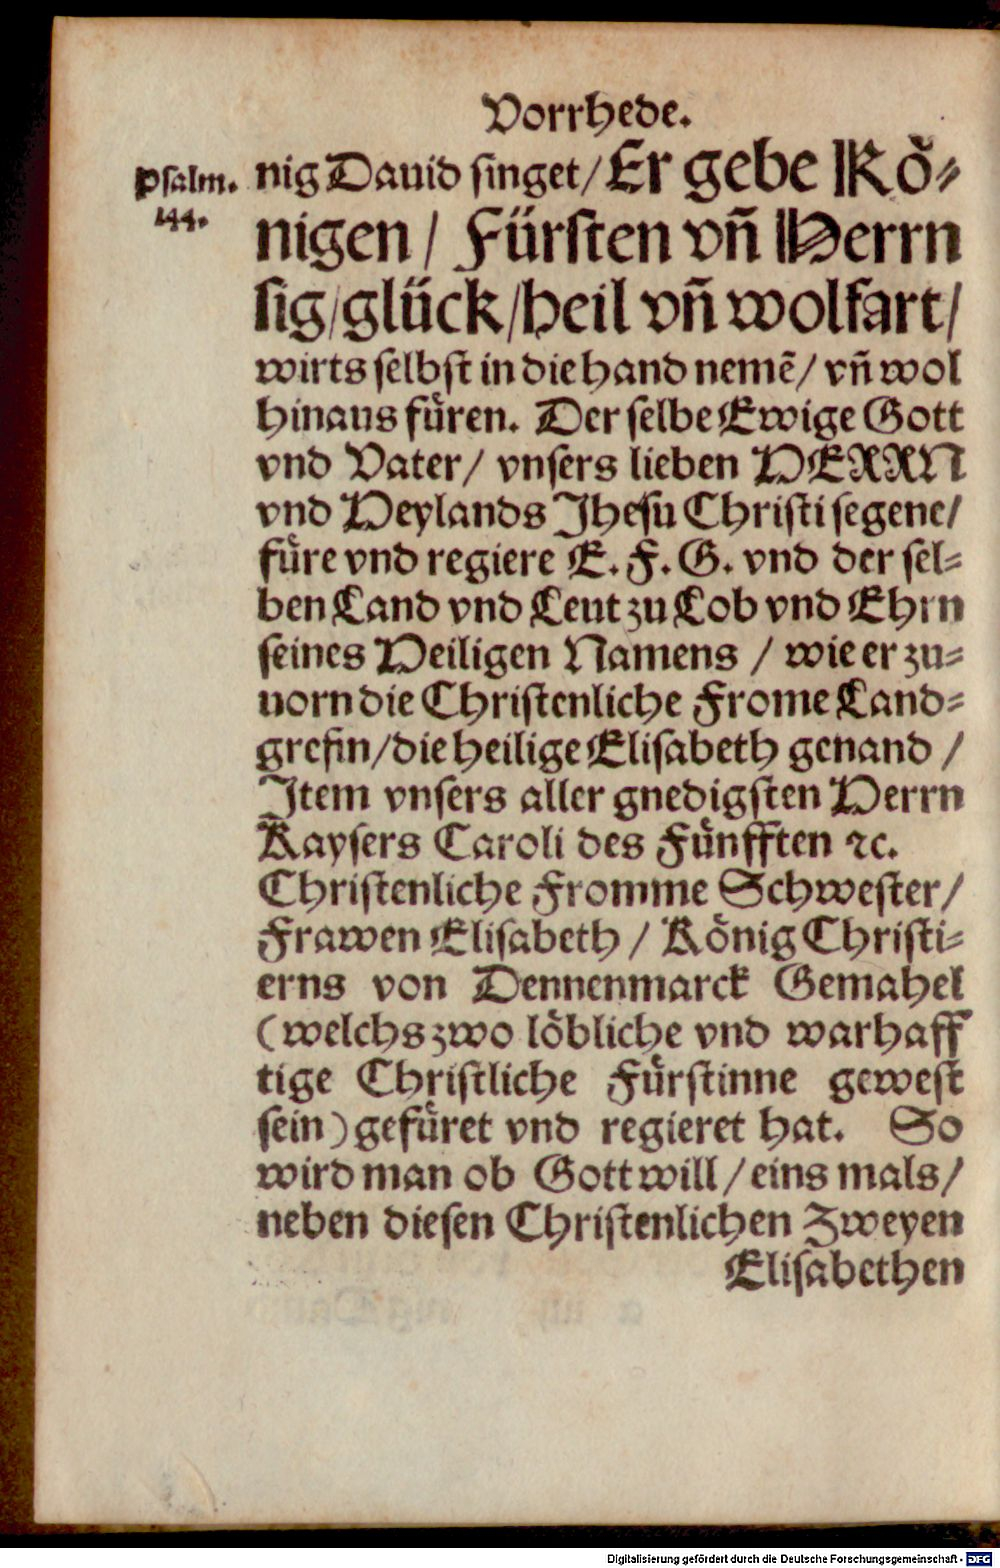 Vorrhede.
Psalm.
144.
nig Dauid singet/ Er gebe Kö⸗
nigen / Fürsten vñ Herrn
sig/glück/heil vñ wolfart/
wirts selbst in die hand nemẽ/ vñ wol
hinaus füren. Der selbe Ewige Gott
vnd Vater/ vnsers lieben HERRN
vnd Heylands Jhesu Christi segene/
füre vnd regiere E. F. G. vnd der sel⸗
ben Land vnd Leut zu Lob vnd Ehrn
seines Heiligen Namens / wie er zu⸗
uorn die Christenliche Frome Land⸗
grefin/die heilige Elisabeth genand /
Item vnsers aller gnedigsten Herrn
Kaysers Caroli des Fünfften ꝛc.
Christenliche Fromme Schwester/
Frawen Elisabeth / König Christi⸗
erns von Dennenmarck Gemahel
(welchs zwo löbliche vnd warhaff
tige Christliche Fürstinne gewest
sein) gefüret vnd regieret hat. So
wird man ob Gott will/eins mals/
neben diesen Christenlichen Zweyen
Elisabethen
Digitalisierung gefördert durch die Deutsche Forschungsgemeinschaft - DFG